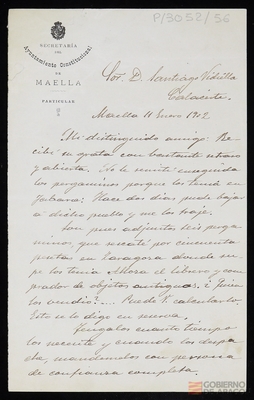 P/3052/56
SECRETARÍA
DEL
Ayuntamiento Constitucional
DE
MAELLA
PARTICULAR
Sor. D. Santiago Vidiella
Calaceite.
Maella 11 Enero 1902.
Mi distinguido amigo: Re-
cibí su grata con bastante retraso
y abierta. No le remití enseguida
los pergaminos porque los tenía en
Fabara: Hace dos dias pude bajar
á dicho pueblo y me los traje.
Son pues adjuntos los perga-
minos, que rescaté por cincuenta
pesetas en Zaragoza donde su-
pe los tenía el librero y com-
prador de objetos antiguos. ¿Quien
los vendió?.... Puede V. calcularlo.
Esto se lo digo en reserva.
Téngalos cuanto tiempo
los necesite y cuando los despa-
che, mándemelos con persona
de confianza completa.
GOBIERNO
DE ARAGON